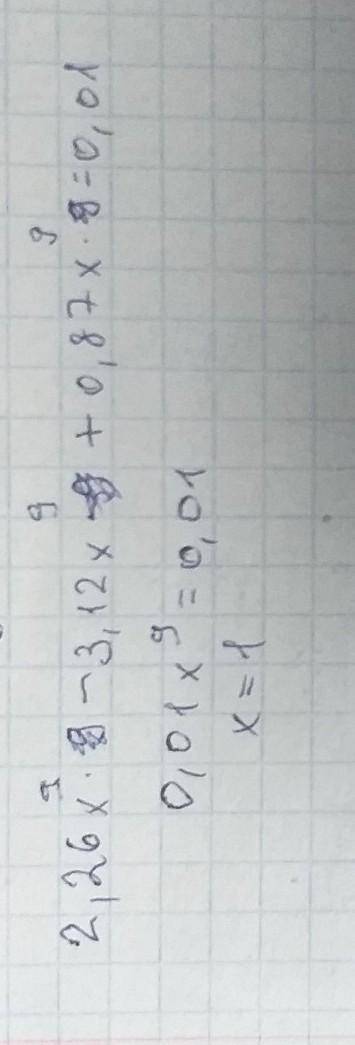 2,26x⁹ · 9 − 3,12x⁹ · 9 + 0,87x⁹ · 9 = 0,01
0,01x⁹ = 0,01
x = 1